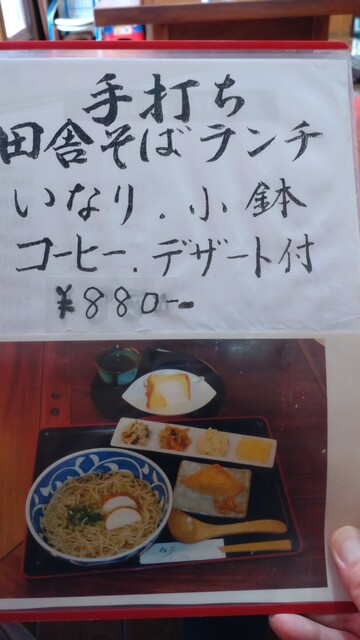 手打ち
田舎そばランチ
いなり.小鉢
コーヒー.デザート付
¥880-